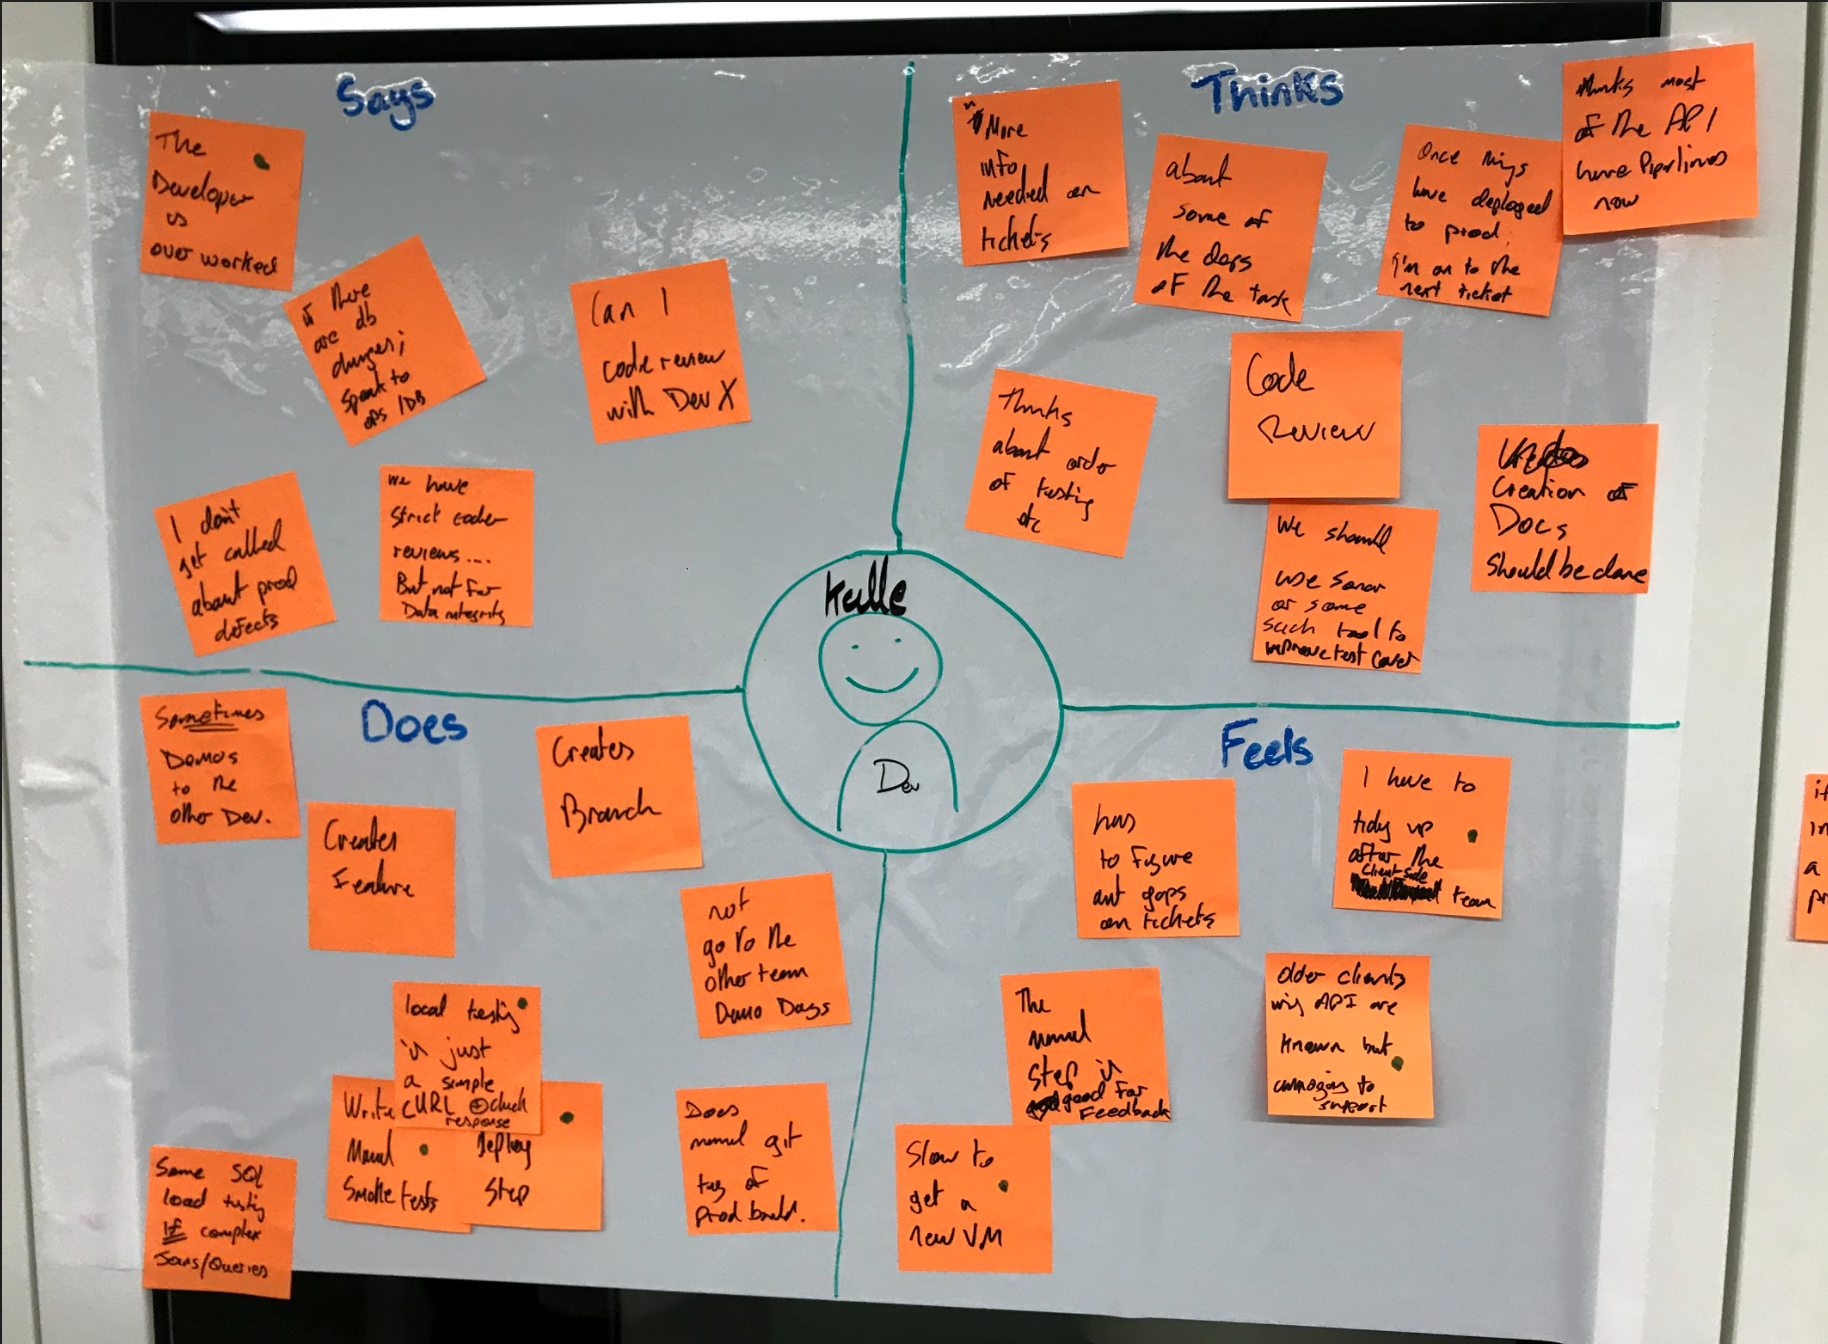 Says
The
Developer
is
over worked
if there
are db
changes;
Speak to
ops/DB
Can I
code review
with Dev X
I don't
get called
about prod
defects
we have
Strict code
reviews....
But not for
Data integrity
Thinks
"More
info
needed on
tickets
about
some of
the deps
of the task
Once things
have deployed
to prod;
I'm on to the
next ticket
thinks most
of the API
have Pipelines
now
Thinks
about order
of testing
etc
Code
Review
We should
use Sonar
or some
such tool to
improve test cover
Creation of
Docs
Should be done
Kalle
Dev
Does
Sometimes
Demos
to the
other Dev.
Creates
Feature
Creates
Branch
not
go to the
other team
Demo Days
local testing
is just
a simple
CURL + check
response
Write
Manual
Smoke tests
Deploy
Step
Some SQL
load testing
If complex
Joins/Queries
Does
manual git
tag of
prod build.
Feels
has
to figure
out gaps
on tickets
I have to
tidy up
after the
Client side
team
The
manual
Step is
good for
Feedback
older clients
using API are
known but
annoying to
support
Slow to
get a
new VM
if
in
a
pr